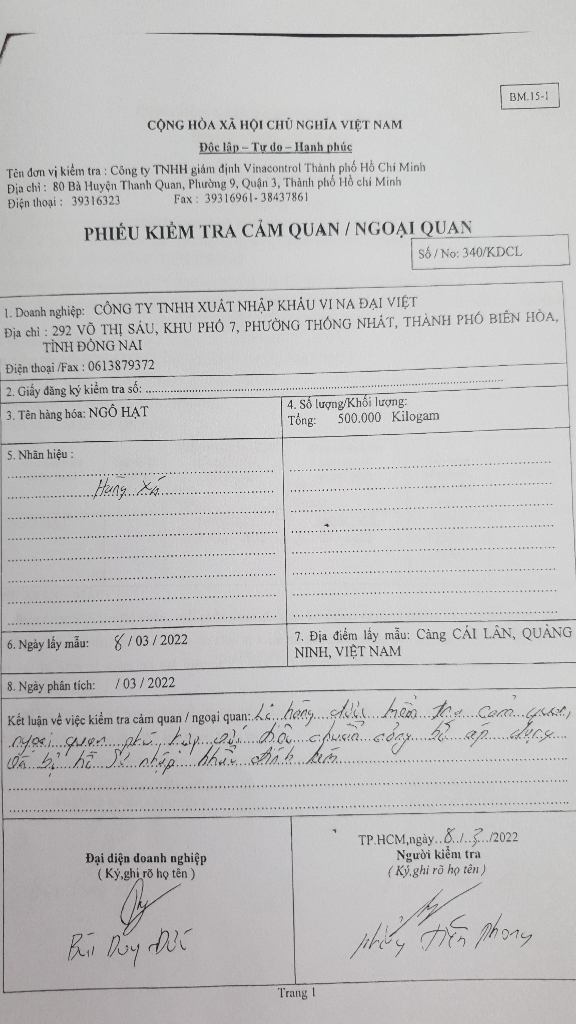 BM.15-1
CỘNG HÒA XÃ HỘI CHỦ NGHĨA VIỆT NAM
Độc lập – Tự do – Hạnh phúc
Tên đơn vị kiểm tra : Công ty TNHH giám định Vinacontrol Thành phố Hồ Chí Minh
Địa chỉ : 80 Bà Huyện Thanh Quan, Phường 9, Quận 3, Thành phố Hồ chí Minh
Điện thoại : 39316323 Fax : 39316961- 38437861
PHIẾU KIỂM TRA CẢM QUAN / NGOẠI QUAN
Số / No: 340/KDCL
1. Doanh nghiệp: CÔNG TY TNHH XUẤT NHẬP KHẨU VI NA ĐẠI VIỆT
Địa chỉ : 292 VÕ THỊ SÁU, KHU PHỐ 7, PHƯỜNG THỐNG NHẤT, THÀNH PHỐ BIÊN HÒA,
TỈNH ĐỒNG NAI
Điện thoại /Fax : 0613879372
2. Giấy đăng ký kiểm tra số:
3. Tên hàng hóa: NGÔ HẠT
4. Số lượng/Khối lượng:
Tổng: 500.000 Kilogam
5. Nhãn hiệu :
Hàng Xá
6. Ngày lấy mẫu: 8 /03 / 2022
7. Địa điểm lấy mẫu: Cảng CÁI LÂN, QUẢNG
NINH, VIỆT NAM
8. Ngày phân tích: / 03 / 2022
Kết luận về việc kiểm tra cảm quan / ngoại quan: Lô hàng được kiểm tra cảm quan,
ngoại quan phù hợp với tiêu chuẩn công bố áp dụng
và bộ hồ sơ nhập khẩu đính kèm
Đại diện doanh nghiệp
( Ký,ghi rõ họ tên )
Bùi Duy Đức
TP.HCM,ngày 8 / 3 /2022
Người kiểm tra
( Ký,ghi rõ họ tên )
Tiến Phong
Trang 1